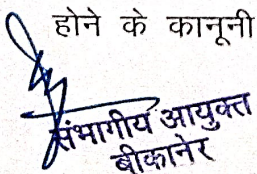 होने के कानूनी
संभागीय आयुक्त
बीकानेर